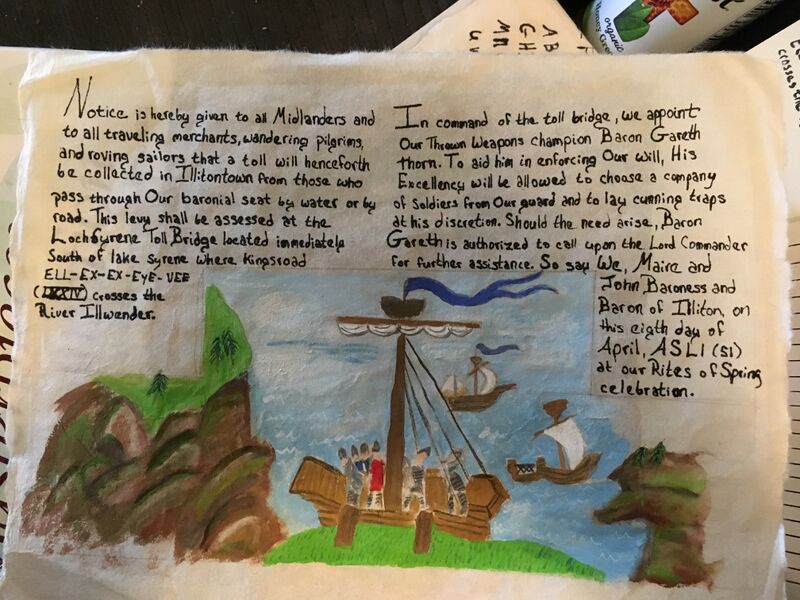 Notice is hereby given to all Midlanders and
to all traveling merchants, wandering pilgrims,
and roving sailors that a toll will henceforth
be collected in Illitontown from those who
pass through Our baronial seat by water or by
road. This levy shall be assessed at the
Loch Syrene Toll Bridge located immediately
South of lake Syrene where Kingsroad
ELL-EX-EX-EYE-VEE
(LXXIV) crosses the
River Illwander.
In command of the toll bridge, we appoint
Our Thrown Weapons champion Baron Gareth
thorn. To aid him in enforcing Our will, His
Excellency will be allowed to choose a company
of Soldiers from Our guard and to lay cunning traps
at his discretion. Should the need arise, Baron
Gareth is authorized to call upon the Lord Commander
for further assistance. So say We, Maire and
John Baroness and
Baron of Illiton, on
this eigth day of
April, ASLI (51)
at our Rites of Spring
celebration.
organic
AB
GH
MN
crosses the